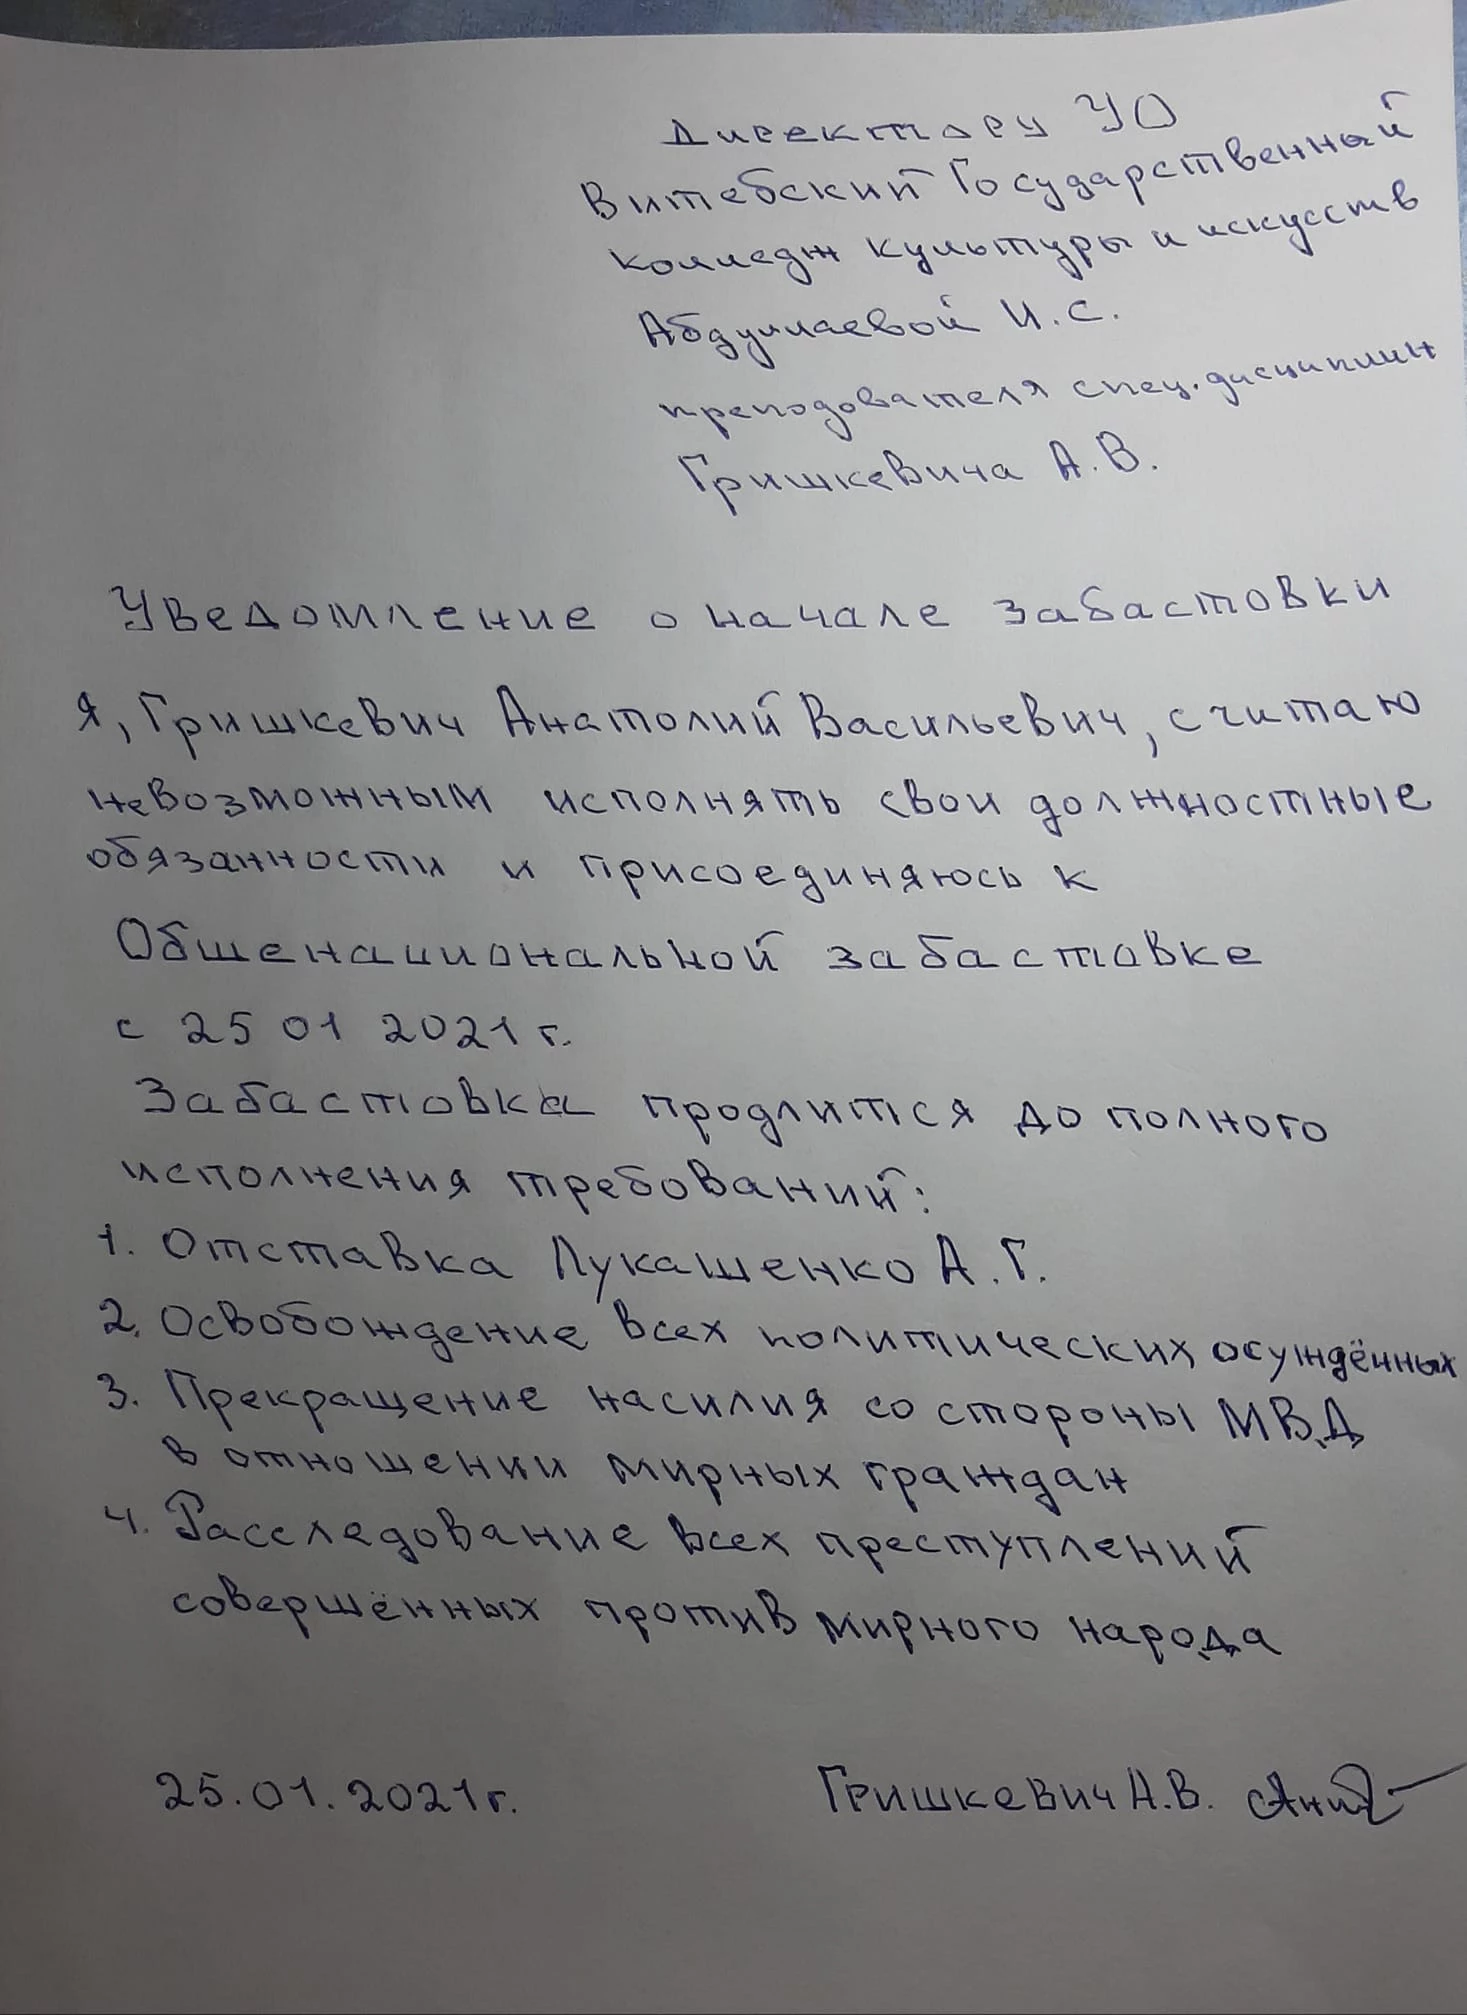 Директору УО
Витебский Государственный
колледж культуры и искусств
Абдуллаевой И.С.
преподователя спец. дисциплин
Гришкевича А.В.
Уведомление о начале забастовки
Я, Гришкевич Анатолий Васильевич, считаю
невозможным исполнять свои должностные
обязанности и присоединяюсь к
Обшенациональной забастовке
с 25 01 2021 г.
Забастовка продлится до полного
исполнения требований:
1. Отставка Лукашенко А.Г.
2. Освобождение всех политических осуждённых
3. Прекращение насилия со стороны МВД
в отношении мирных граждан
4. Расследование всех преступлений
совершённых против мирного народа
25.01.2021г. Гришкевич А.В.